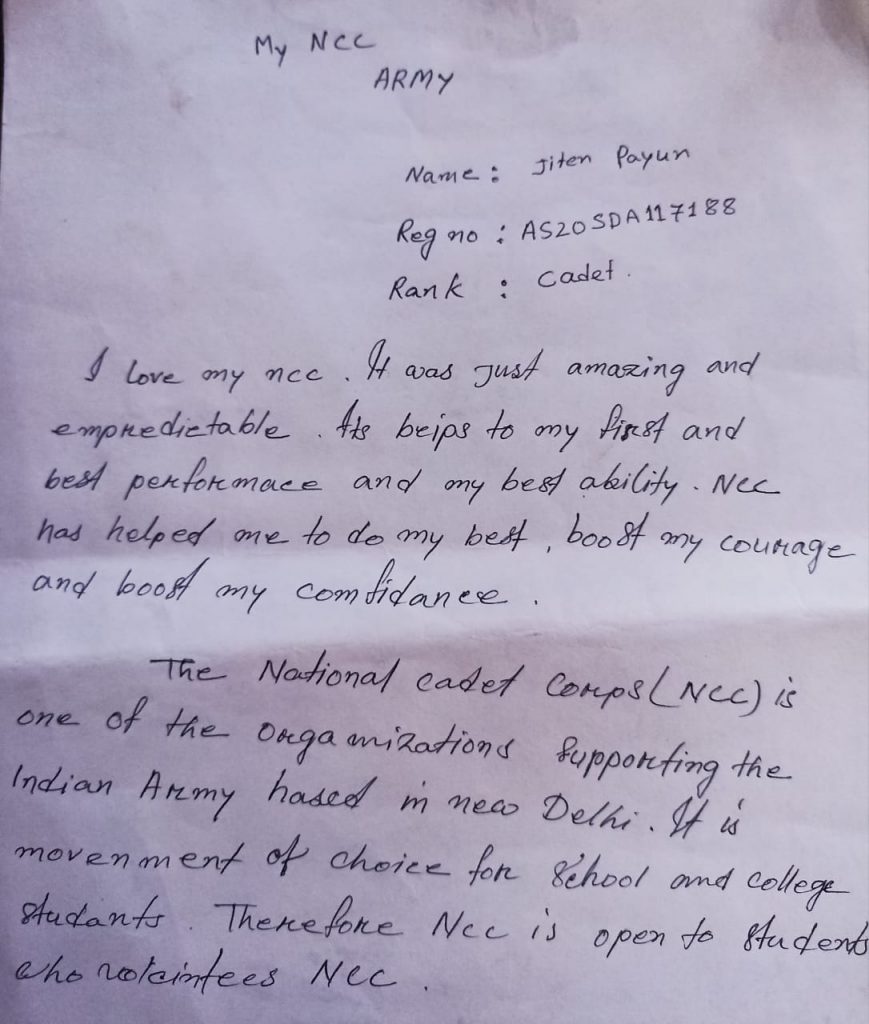 My NCC
ARMY
Name : Jiten Payun
Reg no : AS20SDA117188
Rank : Cadet.
I love my ncc. It was just amazing and
empredictable. Its beips to my first and
best performace and my best ability. NCC
has helped me to do my best, boost my courage
and boost my comfidance.
The National cadet Corps (NCC) is
one of the organizations supporting the
Indian Army hased in new Delhi. It is
movenment of choice for School and college
studants. Therefore Ncc is open to students
who NCC.